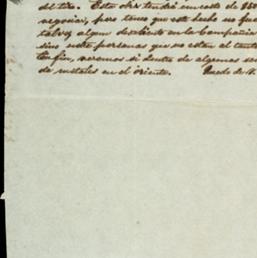 del tiro. Esta obra tendrá un costo de 250
negociar, pero temo que este hecho no fue
talvez algun descuento en la Compañia
sino entre personas que no estan al tanto
En fin, veremos si dentro de algunas se
de metales en el oriente. Quedo de V.